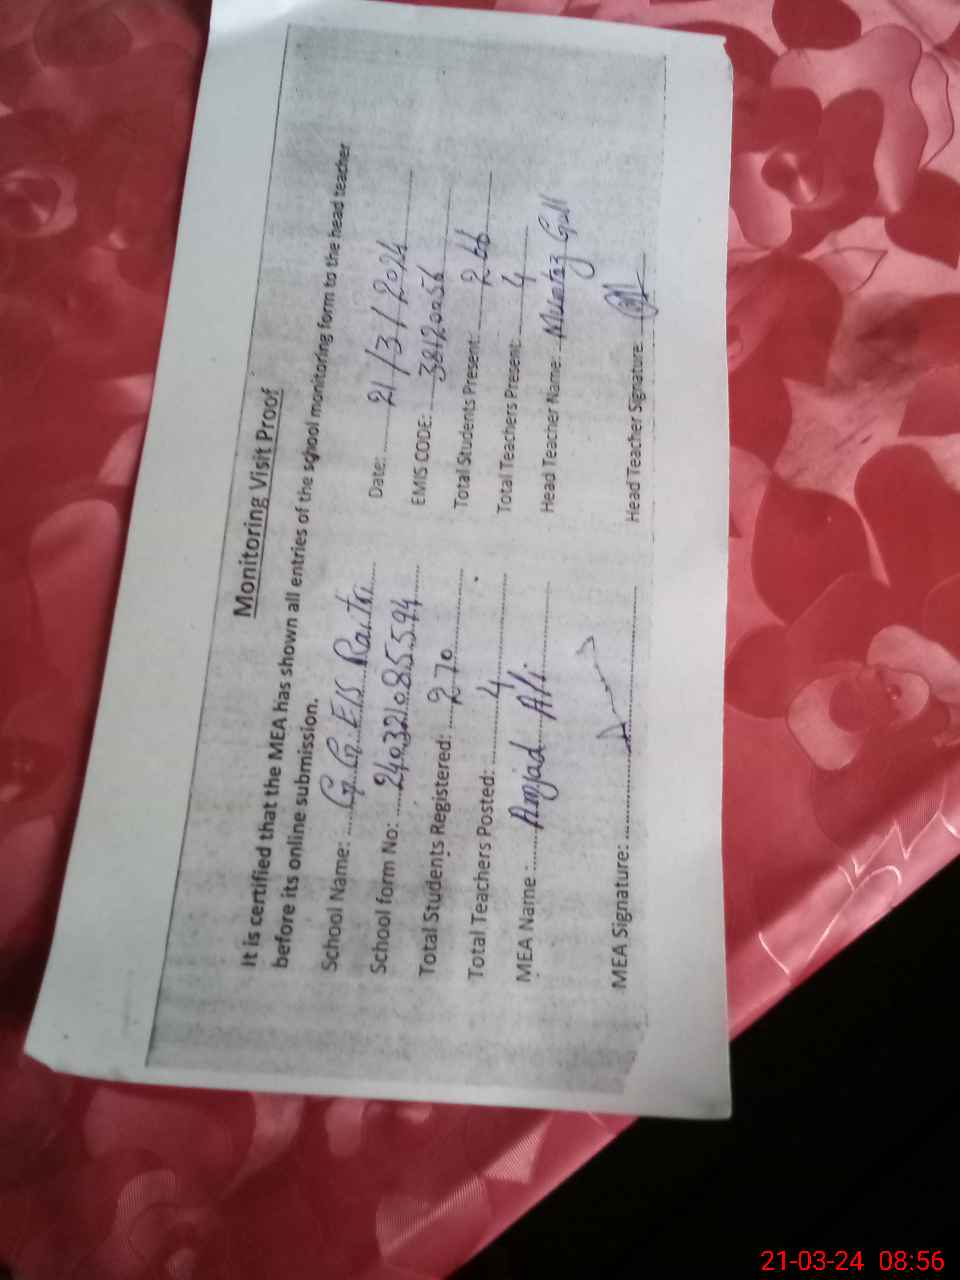 Monitoring Visit Proof
It is certified that the MEA has shown all entries of the school monitoring form to the head teacher
before its online submission.
School Name: G.G.E/S Raitri Date: 21/3/2024
School form No: 240321085594 EMIS CODE: 38120056
Total Students Registered: 270 Total Students Present: 266
Total Teachers Posted: 4 Total Teachers Present: 4
MEA Name: Amjad Ali. Head Teacher Name: Mumtaz Gull
MEA Signature: Head Teacher Signature:
21-03-24 08:56